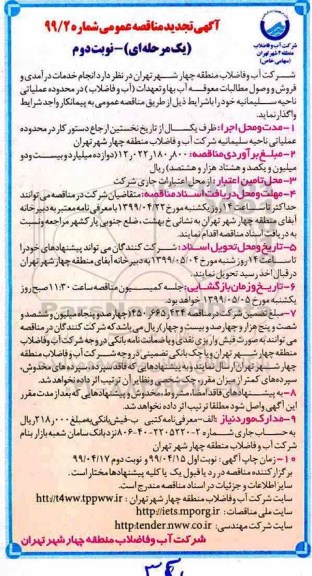 آگهی تجدید مناقصه عمومی شماره ۹۹/۲
(یک مرحله‌ای) - نوبت دوم
شرکت آب و فاضلاب
منطقه ۴ شهر تهران
(سهامی خاص)
شرکت آب و فاضلاب منطقه چهار شهر تهران در نظر دارد انجام خدمات درآمدی و
فروش و وصول مطالبات معوقه آب بها و تعهدات (آب و فاضلاب) در محدوده عملیاتی
ناحیه سلیمانیه خود را با شرایط ذیل از طریق مناقصه عمومی به پیمانکار واجد شرایط
واگذار نماید.
۱- مدت و محل اجرا: ظرف یکسال از تاریخ نخستین ارجاع دستور کار در محدوده
عملیاتی ناحیه سلیمانیه شرکت آب و فاضلاب منطقه چهار شهر تهران
۲- مبلغ برآوردی مناقصه: ۱۲,۰۲۲,۱۸۰,۸۰۰ (دوازده میلیارد و بیست و دو
میلیون و یکصد و هشتاد هزار و هشتصد) ریال
۳- محل تامین اعتبار: از محل اعتبارات جاری شرکت
۴- مهلت و محل دریافت اسناد مناقصه: متقاضیان شرکت در مناقصه می توانند
حداکثر تا ساعت ۱۴ روز یکشنبه مورخ ۱۳۹۹/۰۴/۲۲ با معرفی نامه معتبر به دبیرخانه
آبفای منطقه چهار شهر تهران به نشانی خ بهشت، ضلع جنوبی پارک شهر مراجعه و نسبت
به دریافت اسناد مناقصه اقدام نمایند.
۵- تاریخ و محل تحویل اسناد: شرکت کنندگان می تواند پیشنهادهای خود را
تا ساعت ۱۴ روز شنبه مورخ ۱۳۹۹/۰۵/۰۴ به دبیرخانه آبفای منطقه چهار شهر تهران
در قبال اخذ رسید تحویل نمایند.
۶- تاریخ و زمان بازگشایی: جلسه کمیسیون مناقصه ساعت ۱۱:۳۰ صبح روز
یکشنبه مورخ ۱۳۹۹/۰۵/۰۵ خواهد بود.
۷- مبلغ تضمین شرکت در مناقصه ۴۵۰,۶۶۵,۴۲۴ (چهارصد و پنجاه میلیون و ششصد و
شصت و پنج هزار و چهارصد و بیست و چهار) ریال می باشد که شرکت کنندگان در مناقصه
می توانند به صورت فیش واریزی نقدی و یا ضمانت نامه بانکی در وجه شرکت آب و فاضلاب
منطقه چهار شهر تهران و یا چک بانکی تضمینی در وجه شرکت آب و فاضلاب منطقه
چهار شهر تهران ارسال نمایند و به پیشنهادهایی که فاقد سپرده، سپرده های مخدوش،
سپرده های کمتر از میزان مقرر، چک شخصی و نظایر آن ترتیب اثر داده نخواهد شد.
۸- به پیشنهادهای فاقد امضاء، مشروط، مخدوش و پیشنهادهایی که بعد از مدت مقرر
این آگهی واصل شود مطلقا ترتیب اثر داده نخواهد شد.
۹- مدارک مورد نیاز: الف- معرفی نامه کتبی ب- فیش بانکی به مبلغ ۲۱۸,۰۰۰ ریال
به حساب جاری شماره نزد بانک سامان شعبه بازار بنام
شرکت آب و فاضلاب منطقه چهار شهر تهران
۱۰- زمان چاپ آگهی: نوبت اول ۹۹/۰۴/۱۵ و نوبت دوم ۹۹/۰۴/۱۷
برگزار کننده مناقصه در رد یا قبول یک یا کلیه پیشنهادها مختار است.
سایر اطلاعات و جزئیات در اسناد مناقصه مندرج است.
سایت شرکت آب و فاضلاب منطقه چهار شهر تهران: http://t4ww.tppww.ir
سایت ملی مناقصات: http://iets.mporg.ir
سایت شرکت مهندسی: http:tender.nww.co.ir
شرکت آب و فاضلاب منطقه چهار شهر تهران